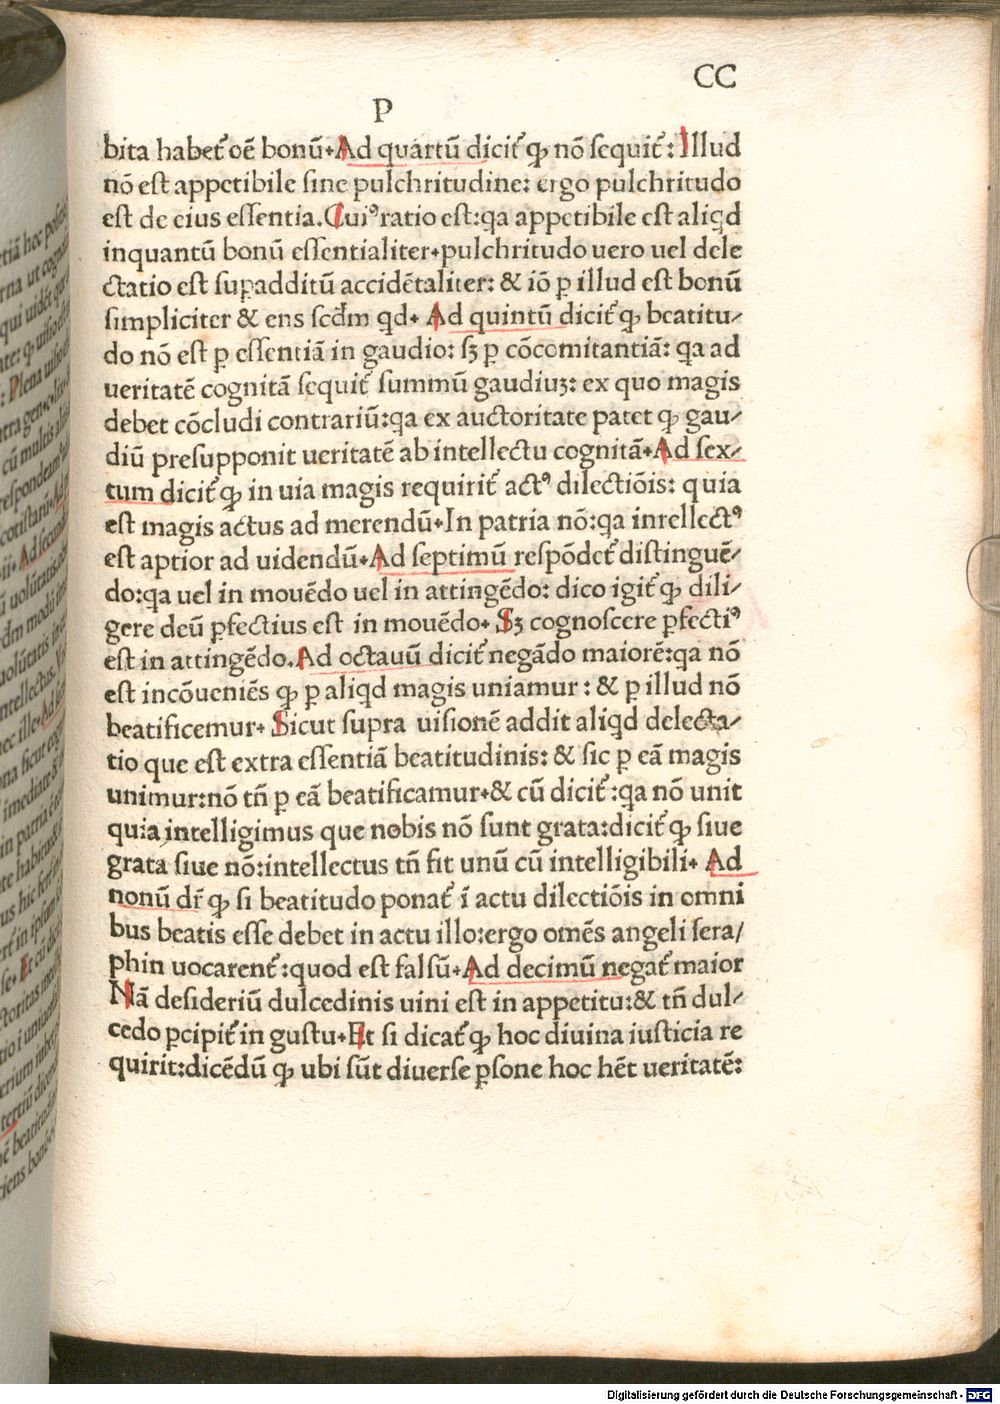 CC
P
bita habet᷑ oē bonū. Ad quartū dicit᷑ ꝙ nō ſequit᷑: Illud
nō eſt appetibile ſine pulchritudine: ergo pulchritudo
eſt de eius eſſentia. Cuiꝰ ratio eſt: qa appetibile eſt aliqd
inquantū bonū eſſentialiter. pulchritudo uero uel dele
ctatio eſt ſupadditū accidētaliter: & iō p illud eſt bonū
ſimpliciter & ens ſcdm qd. Ad quintū dicit᷑ ꝙ beatitu/
do nō eſt p eſſentiā in gaudio: ſꝫ p cōcomitantiā: qa ad
ueritatē cognitā ſequit᷑ ſummū gaudiuꝫ: ex quo magis
debet cōcludi contrariū: qa ex auctoritate patet ꝙ gau/
diū preſupponit ueritatē ab intellectu cognitā. Ad ſex/
tum dicit᷑ ꝙ in uia magis requirit᷑ actꝰ dilectiōis: quia
eſt magis actus ad merendū. In patria nō: qa intellectꝰ
eſt aptior ad uidendū. Ad ſeptimū reſpōdet᷑ diſtinguē/
do: qa uel in mouēdo uel in attingēdo: dico igit᷑ ꝙ dili/
gere deū ꝑfectius eſt in mouēdo. Sꝫ cognoſcere ꝑfectiꝰ
eſt in attingēdo. Ad octauū dicit᷑ negādo maiorē: qa nō
eſt incōueniēs ꝙ p aliqd magis uniamur: & p illud nō
beatificemur. Sicut ſupra uiſionē addit aliqd delecta/
tio que eſt extra eſſentiā beatitudinis: & ſic p eā magis
unimur: nō tn̄ p eā beatificamur. & cū dicit᷑: qa nō unit
quia intelligimus que nobis nō ſunt grata: dicit᷑ ꝙ ſiue
grata ſiue nō: intellectus tn̄ fit unū cū intelligibili. Ad
nonū dr̄ ꝙ ſi beatitudo ponat᷑ ī actu dilectiōis in omni
bus beatis eſſe debet in actu illo: ergo omēs angeli ſera/
phin uocarent᷑: quod eſt falſū. Ad decimū negat᷑ maior
Nā deſideriū dulcedinis uini eſt in appetitu: & tn̄ dul/
cedo ꝑcipit᷑ in guſtu. Et ſi dicat᷑ ꝙ hoc diuina iuſticia re
quirit: dicēdū ꝙ ubi ſūt diuerſe ꝑſone hoc hēt ueritatē:
Digitalisierung gefördert durch die Deutsche Forschungsgemeinschaft - DFG